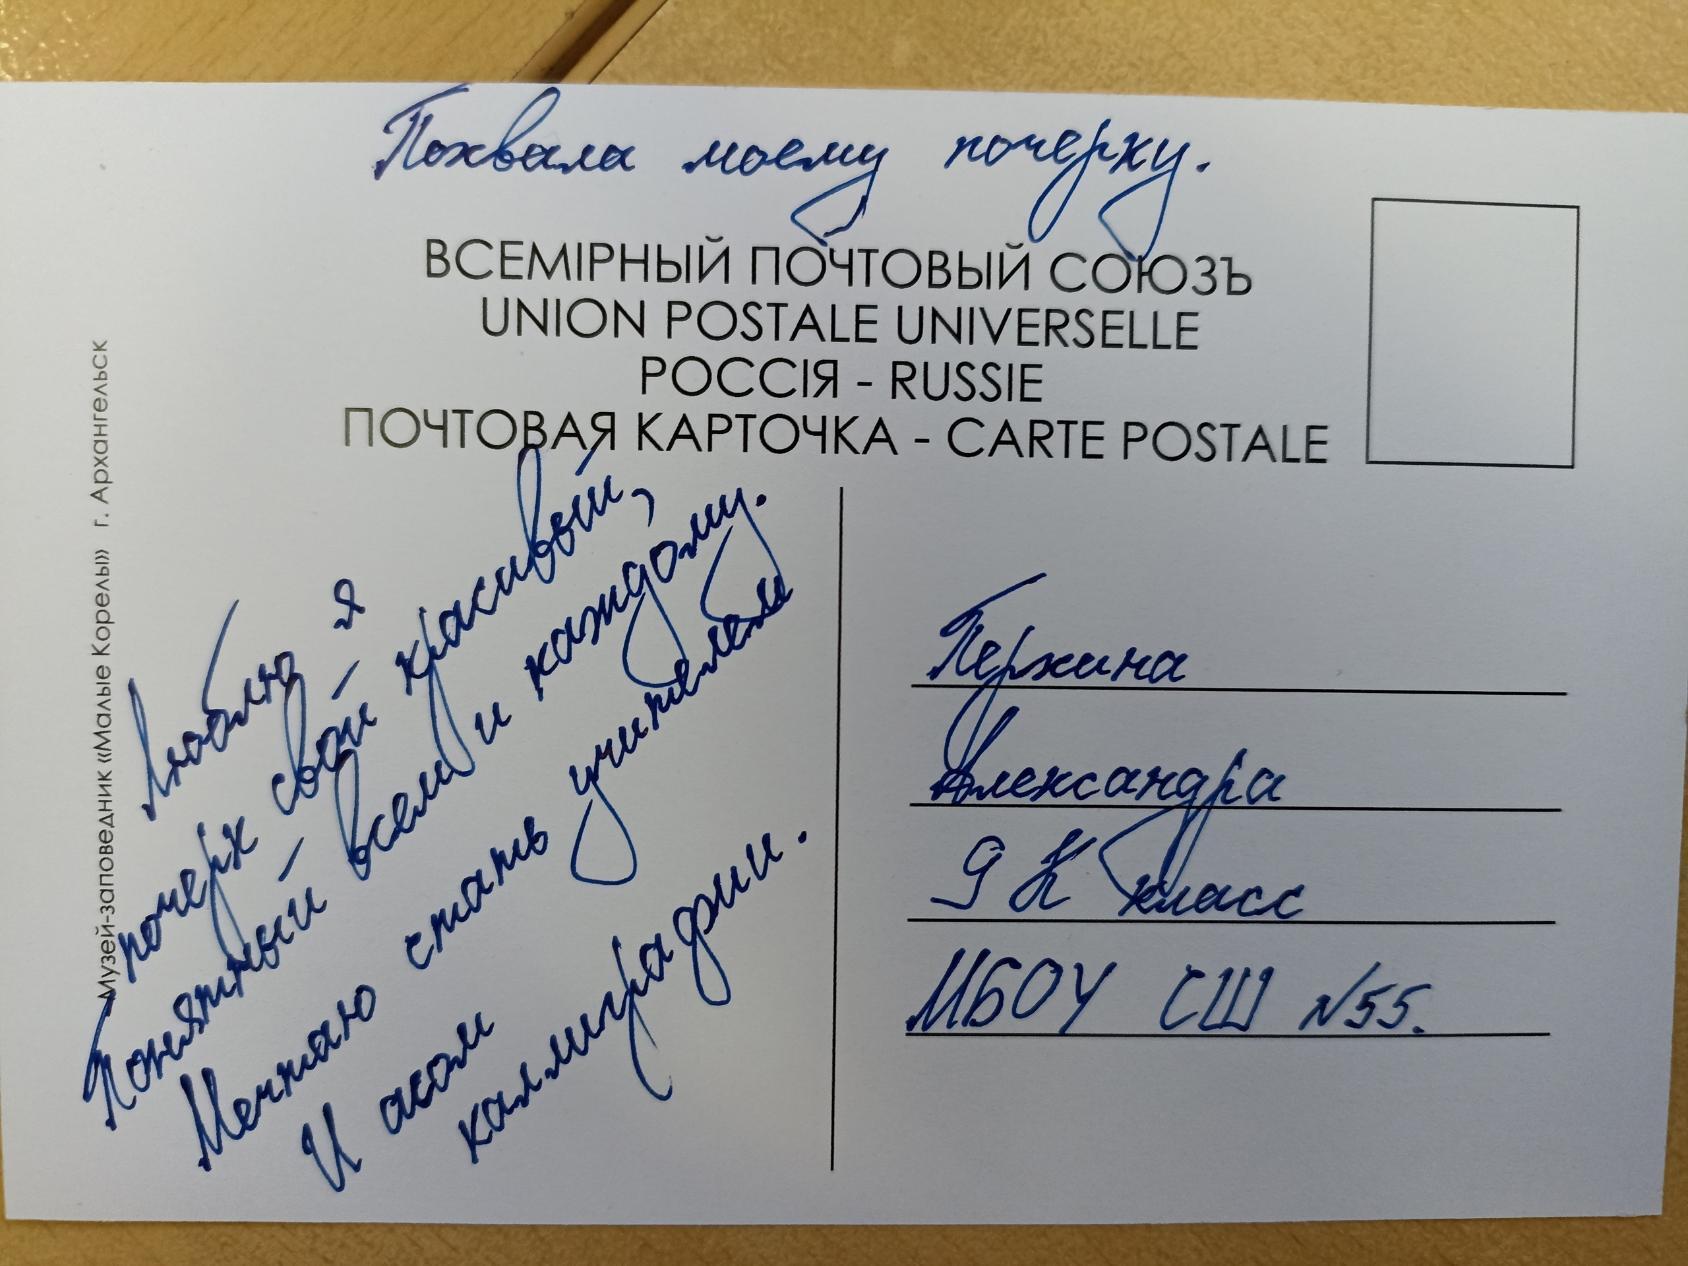 Похвала моему почерку.
ВСЕМІРНЫЙ ПОЧТОВЫЙ СОЮЗЪ
UNION POSTALE UNIVERSELLE
РОССІЯ - RUSSIE
ПОЧТОВАЯ КАРТОЧКА - CARTE POSTALE
Музей-заповедник «Малые Корелы» г. Архангельск
Люблю я
почерк свой красивый,
Понятный всем и каждому.
Мечтаю стать учителем
И асом
каллиграфии.
Перхина
Александра
9 К класс
МБОУ СШ №55.